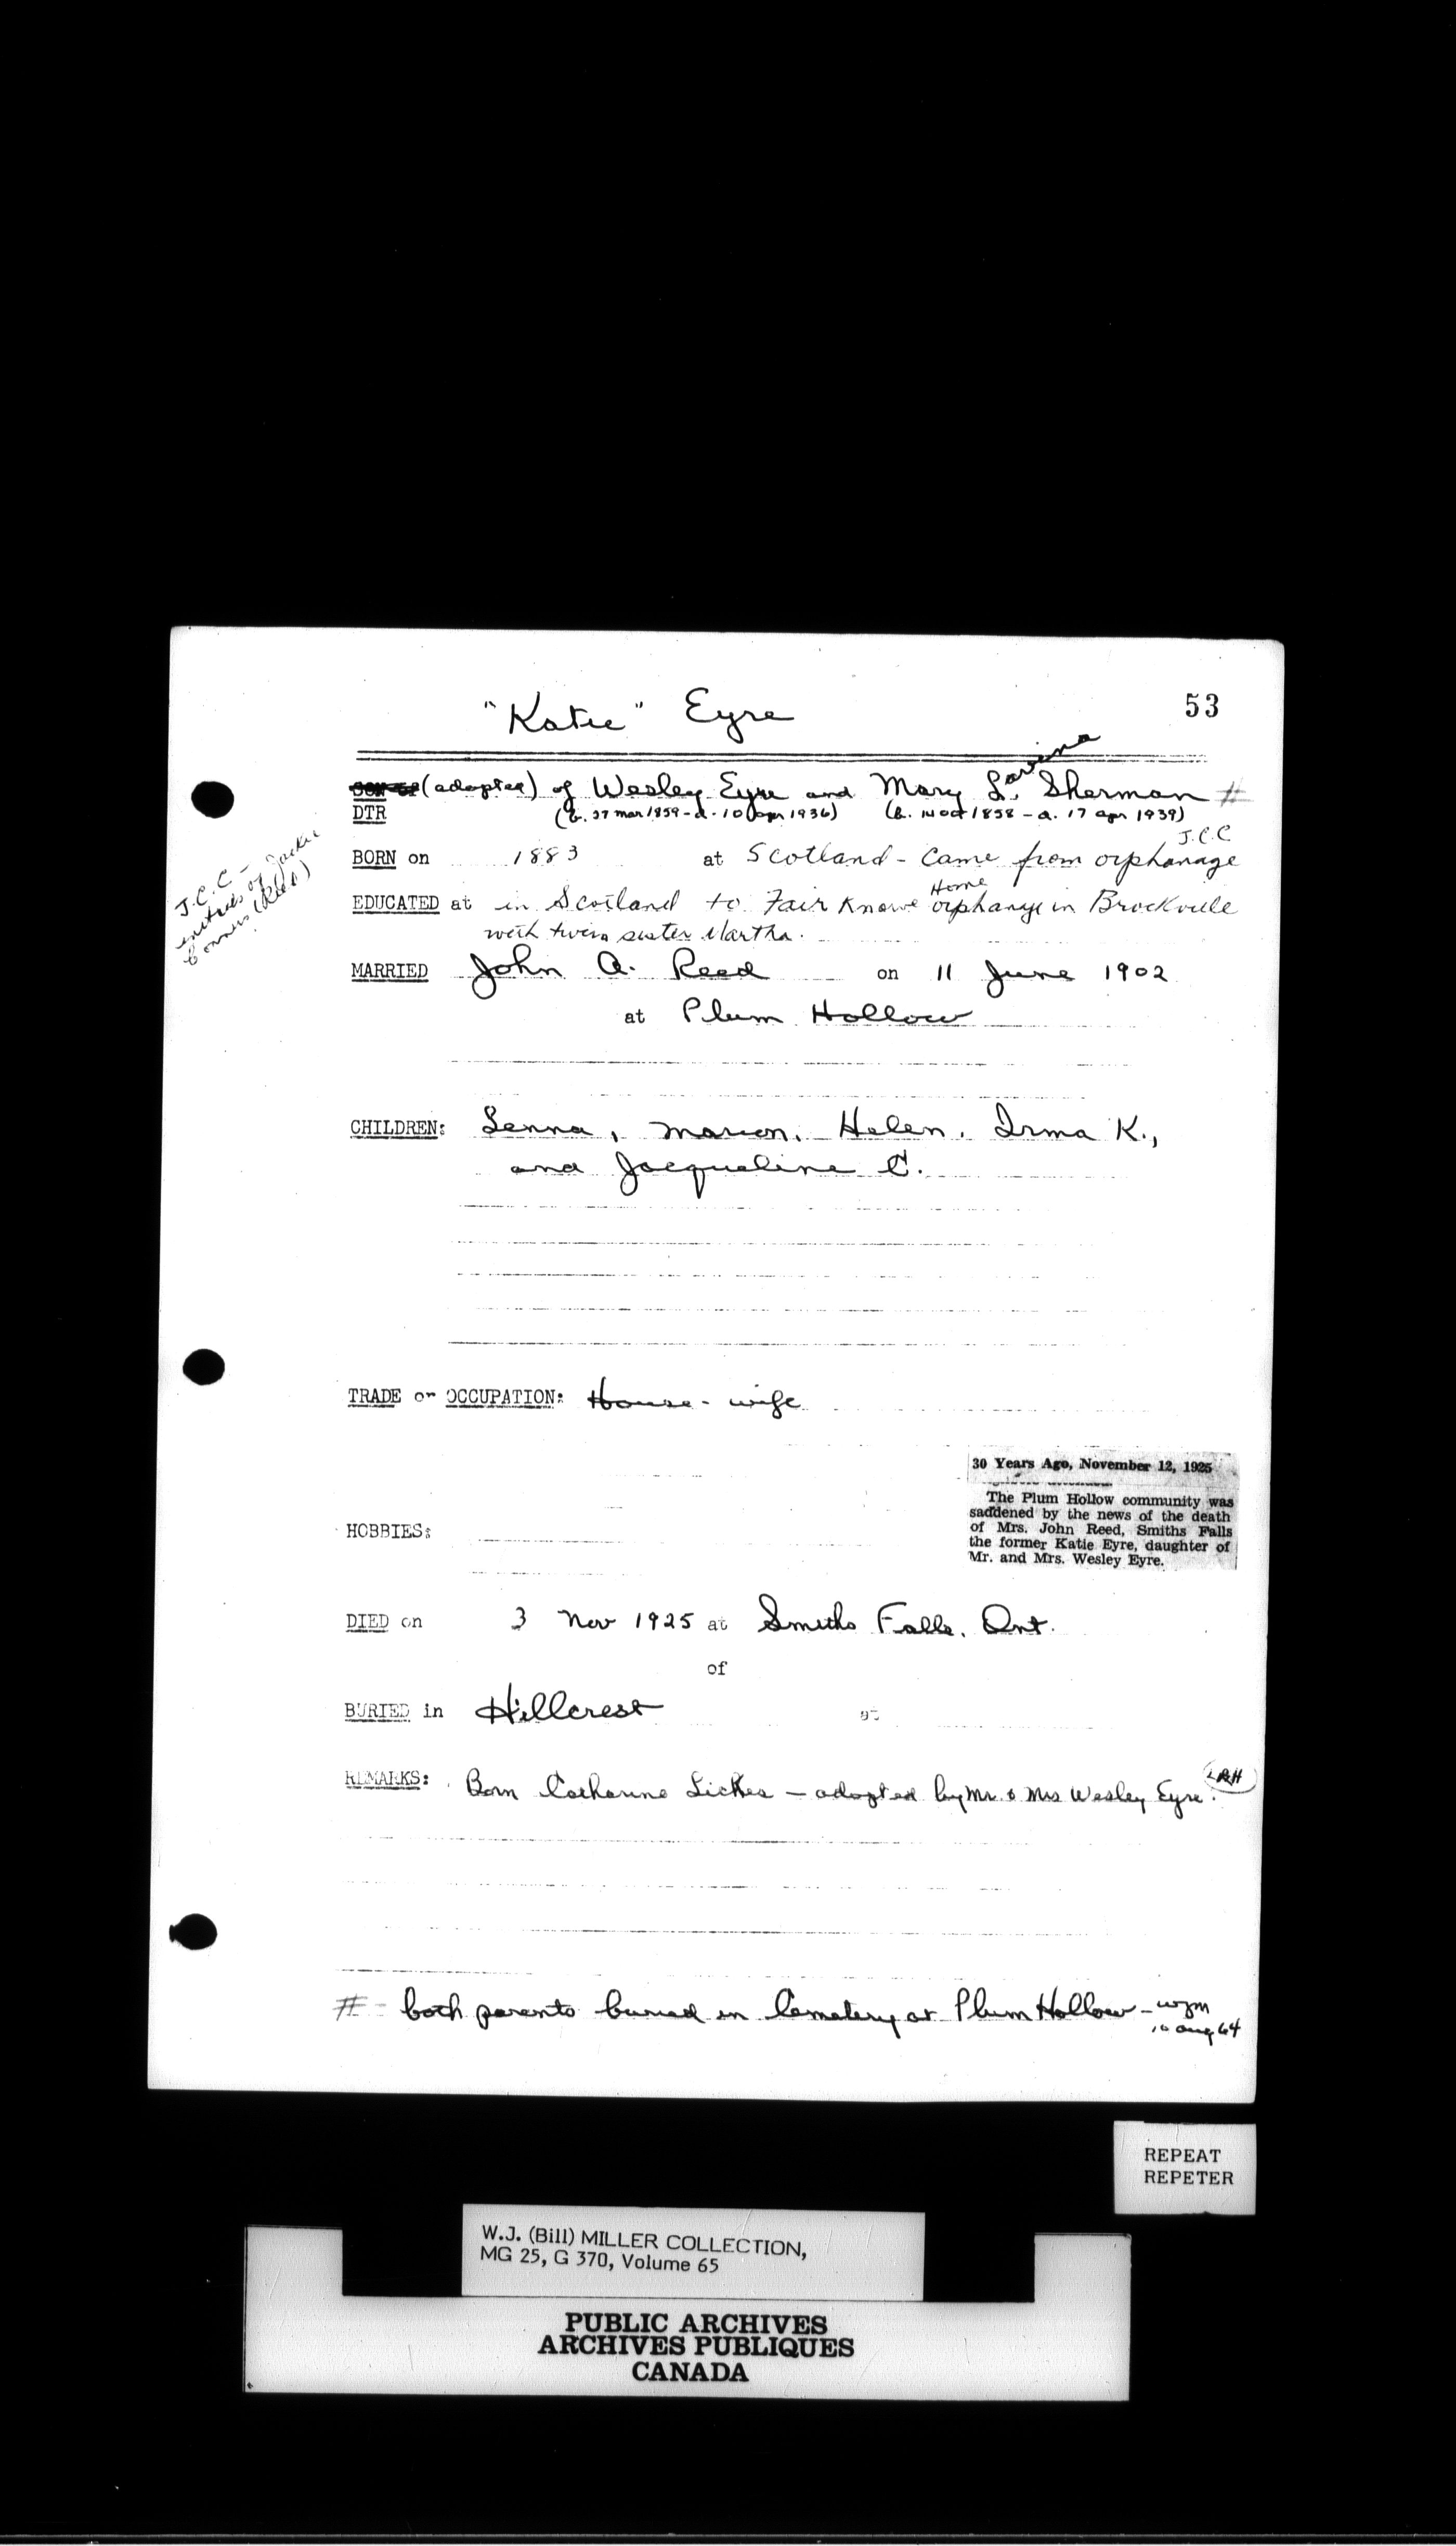 53
"Katie" Eyre
SON OF (adopted) of Wesley Eyre and Mary L. Sherman #
Lavina
DTR (b. 27 mar 1859 - d. 10 apr 1936) (b. 14 Oct 1858 - d. 17 apr 1939)
J.C.C
BORN on 1883 at Scotland - Came from orphanage
Home
EDUCATED at in Scotland to Fair Knowe orphanage in Brockville
with twin sister Martha.
J.C.C -
initials of Jackie
Conners (Reed)
MARRIED John A. Reed on 11 June 1902
at Plum Hollow
CHILDREN: Lenna, Marion, Helen, Irma K.,
and Jacqueline C.
TRADE or OCCUPATION: House-wife
30 Years Ago, November 12, 1925
The Plum Hollow community was
saddened by the news of the death
of Mrs. John Reed, Smiths Falls
the former Katie Eyre, daughter of
Mr. and Mrs. Wesley Eyre.
HOBBIES:
DIED on 3 Nov 1925 at Smiths Falls, Ont.
of
BURIED in Hillcrest at
REMARKS: Born Catharine Lickes - adopted by Mr. & Mrs Wesley Eyre. LRH
# - both parents buried in Cemetery at Plum Hollow - wjm
10 aug 64
REPEAT
REPETER
W.J. (Bill) MILLER COLLECTION,
MG 25, G 370, Volume 65
PUBLIC ARCHIVES
ARCHIVES PUBLIQUES
CANADA